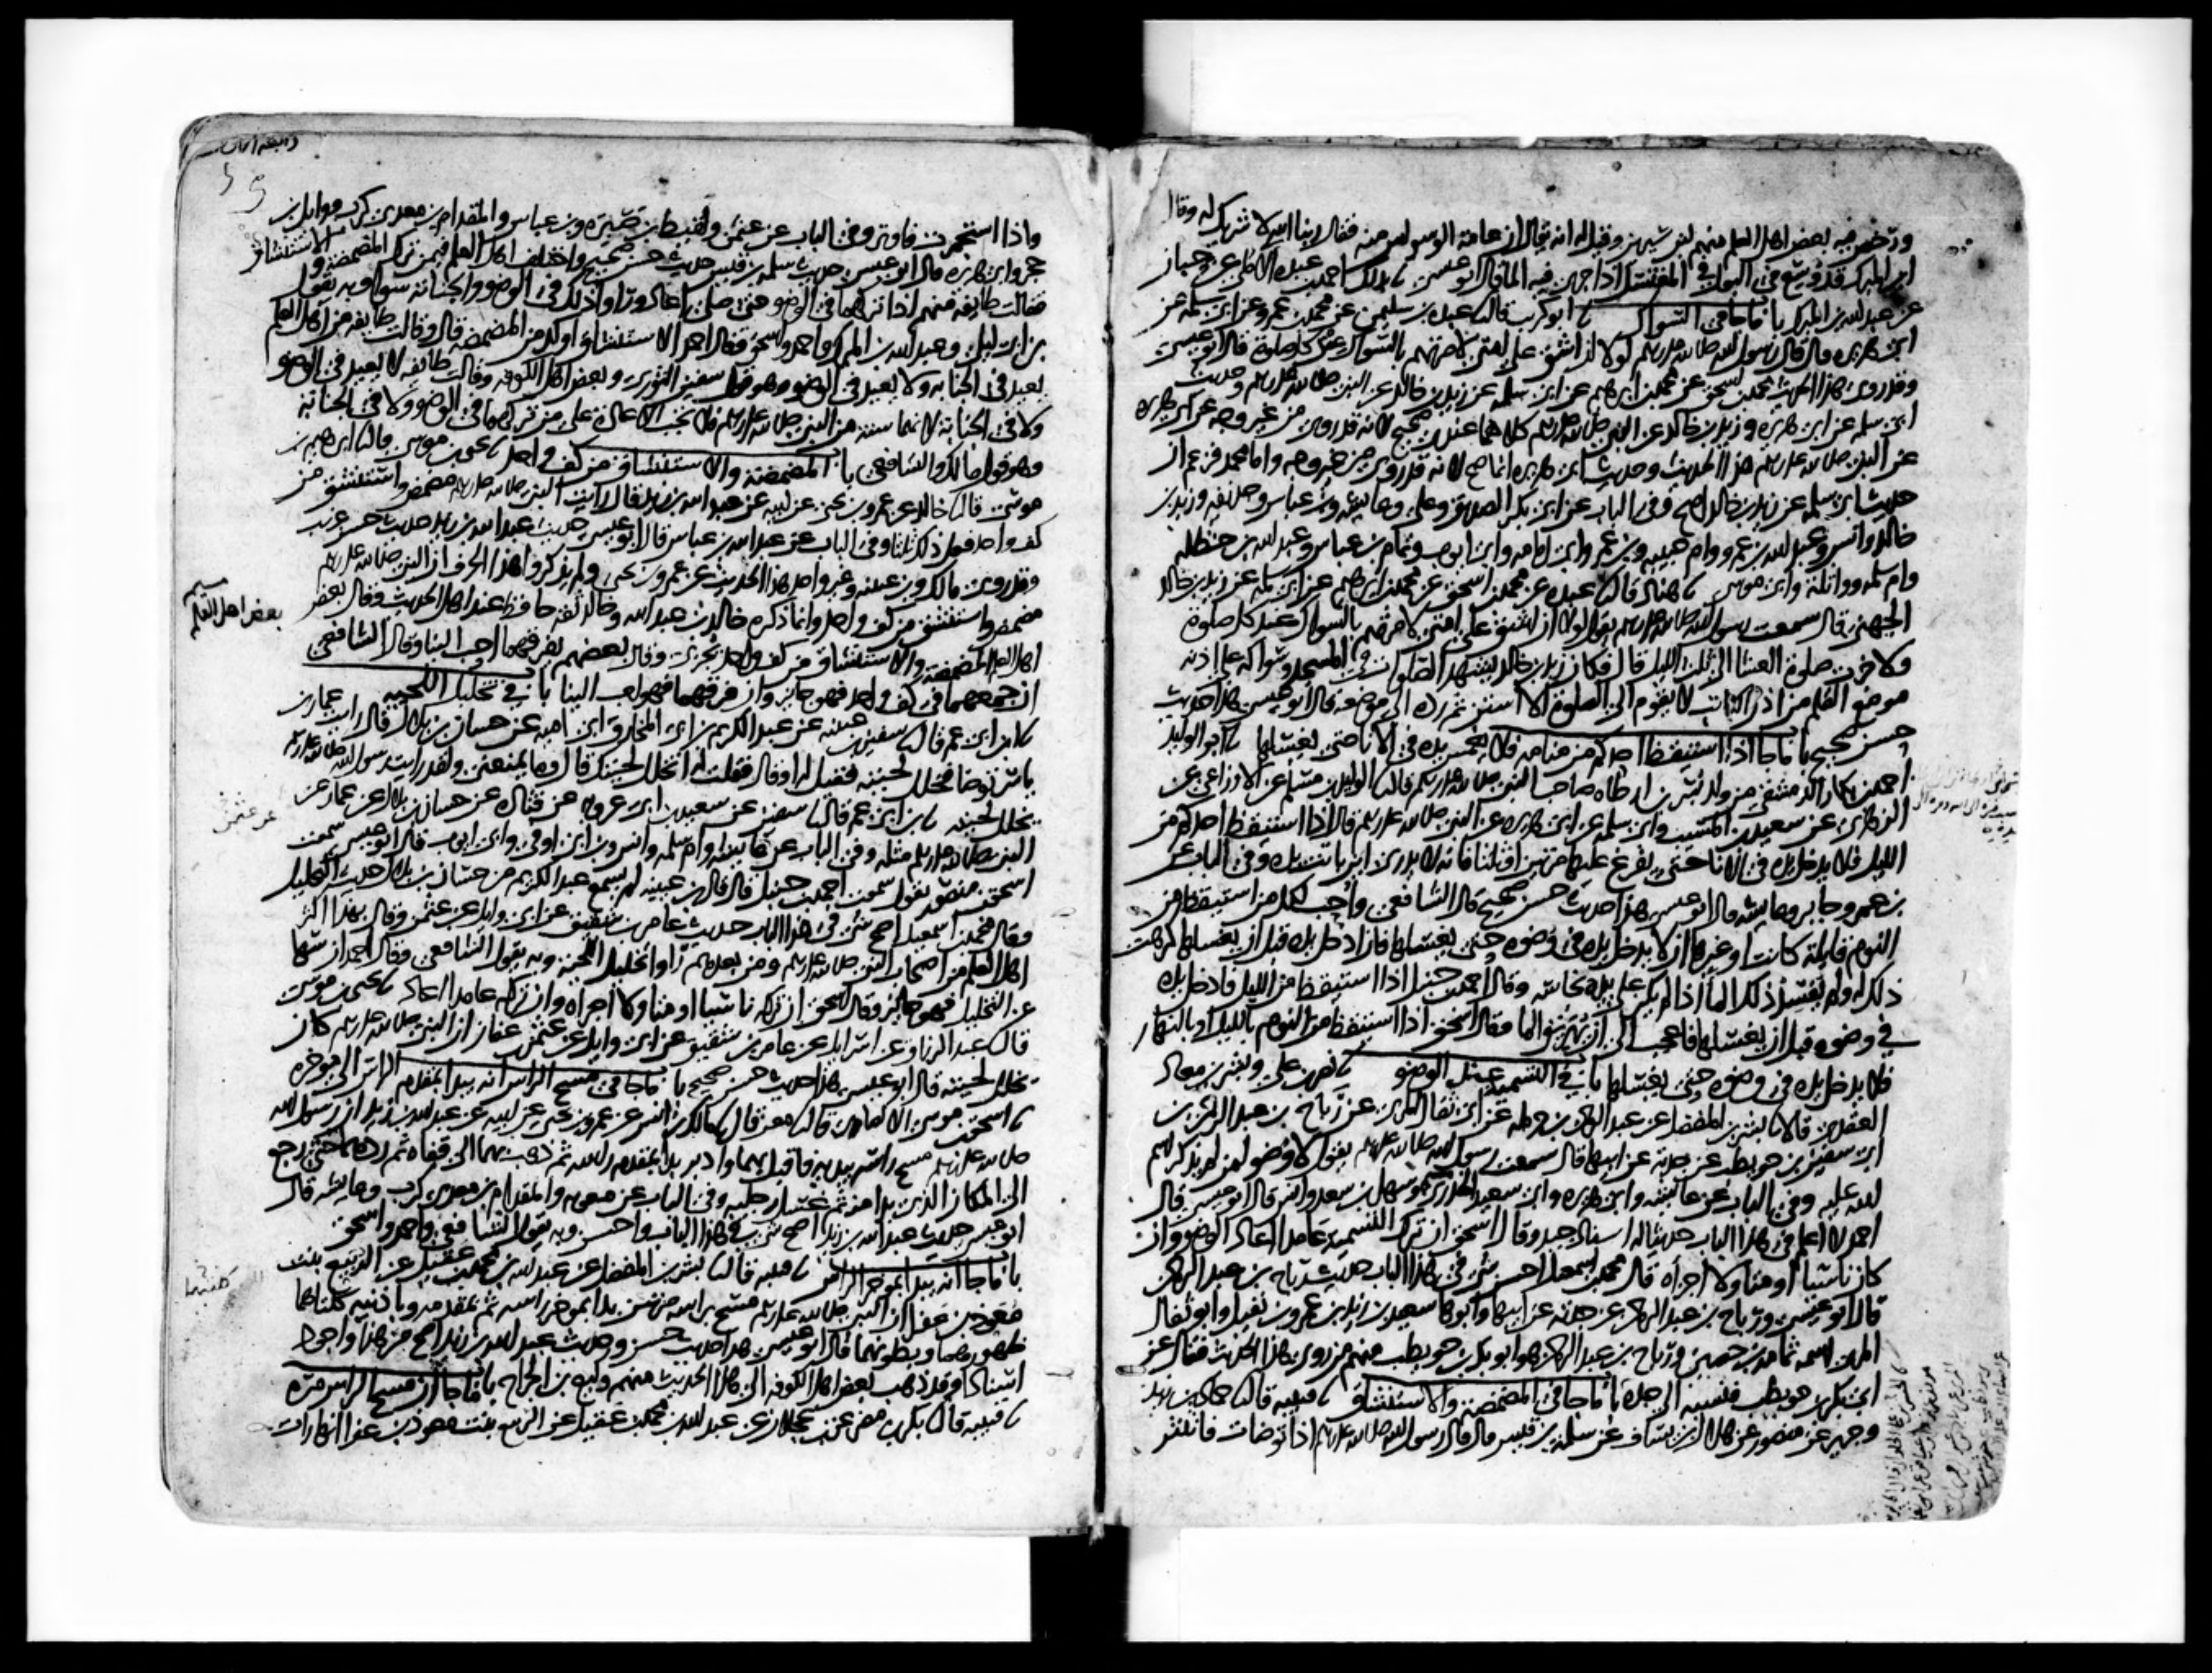 ورخص فيه بعض اهل العلم منهم ابن سيرين وقيل له انه يقال ان عامة الوسواس منه فقال ربنا الله لا شريك له وقال
ابن المبرك قد وسع في البول في المغتسل اذا جرى فيه الما قال ابو عيسى بذلك احمد بن عبده الاملي عن حبان
عن عبد الله بن المبرك باب ما جا في السواك ابو كريب قال عبدة بن سليمن عن محمد بن عمرو عن ابي سلمه عن
ابي هريره قال قال رسول الله صلى الله عليه وسلم لولا ان اشق على امتي لامرتهم بالسواك عند كل صلوة قال ابو عيسى
وقد روى هذا الحديث محمد بن اسحق عن محمد بن ابرهيم عن ابي سلمه عن زيد بن خالد عن النبي صلى الله عليه وسلم وحديث
ابي سلمه عن ابي هريره وزيد بن خالد عن النبي صلى الله عليه وسلم كلاهما عندي صحيح لانه قد روي من غير وجه عن ابي هريره
عن النبي صلى الله عليه وسلم هذا الحديث وحديث ابي هريره انما صح لانه قد روي من غير وجه واما محمد فزعم ان
حديث ابي سلمه عن زيد بن خالد اصح وفي الباب عن ابي بكر الصديق وعلي وعايشه وبن عباس وحذيفه وزيد بن
خالد وانس وعبد الله بن عمرو وام حبيبه وبن عمر وابي امامه وابي ايوب وتمام بن عباس وعبد الله بن حنظله
وام سلمه وواثلة وابي موسى هناد قال عبدة عن محمد بن اسحق عن محمد بن ابرهيم عن ابي سلمه عن زيد بن خالد
الجهني قال سمعت رسول الله صلى الله عليه وسلم يقول لولا ان اشق على امتي لامرتهم بالسواك عند كل صلوة
ولاخرت صلوة العشا الى ثلث الليل قال فكان زيد بن خالد يشهد الصلوات في المسجد وسواكه على اذنه
موضع القلم من اذن الكاتب لا يقوم الى الصلوة الا استن ثم رده الى موضعه قال ابو عيسى هذا حديث
حسن صحيح باب ما جا اذا استيقظ احدكم من منامه فلا يغمس يده في الانا حتى يغسلها ابو الوليد
احمد بن بكار الدمشقي من ولد بسر بن ارطاه صاحب النبي صلى الله عليه وسلم قال الوليد بن مسلم عن الاوزاعي عن
الزهري عن سعيد بن المسيب وابي سلمه عن ابي هريره عن النبي صلى الله عليه وسلم قال اذا استيقظ احدكم من
الليل فلا يدخل يده في الانا حتى يفرغ عليها مرتين او ثلثا فانه لا يدري اين باتت يده وفي الباب عن
بن عمر وجابر وعايشه قال ابو عيسى هذا حديث حسن صحيح قال الشافعي واحب لكل من استيقظ من
النوم قايلة كانت او غيرها ان لا يدخل يده في وضوه حتى يغسلها فان ادخل يده قبل ان يغسلها كرهت
ذلك له ولم يفسد ذلك الما اذا لم يكن على يده نجاسة وقال احمد بن حنبل اذا استيقظ من الليل فادخل يده
في وضوه قبل ان يغسلها فاعجب الي ان يهريق الما وقال اسحق اذا استيقظ من النوم بالليل او بالنهار
فلا يدخل يده في وضوه حتى يغسلها باب في التسميه عند الوضو نصر بن علي وبشر بن معاذ
العقدي قالا بشر بن المفضل عن عبد الرحمن بن حرمله عن ابي ثفال المري عن رباح بن عبد الرحمن بن
ابي سفين بن حويطب عن جدته عن ابيها قال سمعت رسول الله صلى الله عليه وسلم يقول لا وضو لمن لم يذكر اسم
الله عليه وفي الباب عن عايشه وابي هريره وابي سعيد الخدري وسهل بن سعد وانس قال ابو عيسى قال
احمد لا اعلم في هذا الباب حديثا له اسناد جيد وقال اسحق ان ترك التسمية عامدا اعاد الوضو وان
كان ناسيا او متاولا اجزاه قال محمد بن اسمعيل احسن شي في هذا الباب حديث رباح بن عبد الرحمن
قال ابو عيسى ورباح بن عبد الرحمن عن جدته عن ابيها وابوها سعيد بن زيد بن عمرو بن نفيل وابو ثفال
المري اسمه ثمامه بن حصين ورباح بن عبد الرحمن هو ابو بكر بن حويطب منهم من روى هذا الحديث فقال عن
ابي بكر بن حويطب فنسبه الى جده باب ما جا في المضمضة والاستنشاق قتيبه قال حماد بن زيد
وجرير عن منصور عن هلال بن يساف عن سلمة بن قيس قال قال رسول الله صلى الله عليه وسلم اذا توضات فانتثر
واذا استجمرت فاوتر وفي الباب عن عثمن ولقيط بن صبره وبن عباس والمقدام بن معدي كرب ووايل بن
حجر وابي هريره قال ابو عيسى حديث سلمه بن قيس حديث حسن صحيح واختلف اهل العلم فيمن ترك المضمضة والاستنشاق
فقالت طايفه منهم اذا تركهما في الوضو حتى صلى اعاد وراوا ذلك في الوضو والجنابة سوا وبه يقول
بن ابي ليلى وعبد الله بن المبرك واحمد واسحق وقال احمد الاستنشاق اوكد من المضمضه قال وقالت طايفه من اهل العلم
يعيد في الجنابه ولا يعيد في الوضو وهو قول سفين الثوري وبعض اهل الكوفه وقالت طايفه لا يعيد في الوضو
ولا في الجنابة لانهما سنة من النبي صلى الله عليه وسلم فلا تجب الاعادة على من تركهما في الوضو ولا في الجنابة
وهو قول مالك والشافعي باب المضمضة والاستنشاق من كف واحد يحيى بن موسى قال ابرهيم بن
موسى قال خالد عن عمرو بن يحيى عن ابيه عن عبد الله بن زيد قال رايت النبي صلى الله عليه وسلم مضمض واستنشق من
كف واحد فعل ذلك ثلثا وفي الباب عن عبد الله بن عباس قال ابو عيسى حديث عبد الله بن زيد حديث حسن غريب
وقد روى مالك وبن عيينه وغير واحد هذا الحديث عن عمرو بن يحيى ولم يذكروا هذا الحرف ان النبي صلى الله عليه وسلم
مضمض واستنشق من كف واحد وانما ذكره خالد بن عبد الله وخالد ثقه حافظ عند اهل الحديث وقال بعض
بعض اهل العلم
اهل العلم المضمضه والاستنشاق من كف واحد يجزي وقال بعضهم يفرقهما احب الينا وقال الشافعي
ان جمعهما في كف واحد فهو جايز وان فرقهما فهو احب الينا باب في تخليل اللحيه
ابن ابي عمر قال سفين بن عيينه عن عبد الكريم بن ابي المخارق ابي اميه عن حسان بن بلال قال رايت عمار بن
ياسر توضا فخلل لحيته فقيل له او قال فقلت له اتخلل لحيتك قال وما يمنعني ولقد رايت رسول الله صلى الله عليه وسلم
يخلل لحيته بن ابي عمر قال سفين عن سعيد بن ابي عروبه عن قتاده عن حسان بن بلال عن عمار عن
النبي صلى الله عليه وسلم مثله وفي الباب عن عايشه وام سلمه وانس وبن ابي اوفى وابي ايوب قال ابو عيسى سمعت
اسحق بن منصور يقول سمعت احمد بن حنبل قال قال بن عيينه لم يسمع عبد الكريم من حسان بن بلال حديث التخليل
وقال محمد بن اسمعيل اصح شي في هذا الباب حديث عامر بن شقيق عن ابي وايل عن عثمن وقال بهذا اكثر
اهل العلم من اصحاب النبي صلى الله عليه وسلم ومن بعدهم راوا تخليل اللحية وبه يقول الشافعي وقال احمد ان سها
عن التخليل فهو جايز وقال اسحق ان تركه ناسيا او متاولا اجزاه وان تركه عامدا اعاد يحيى بن موسى
قال عبد الرزاق عن اسرايل عن عامر بن شقيق عن ابي وايل عن عثمن بن عفان ان النبي صلى الله عليه وسلم كان
يخلل لحيته قال ابو عيسى هذا حديث حسن صحيح باب ما جا في مسح الراس انه يبدا بمقدم الراس الى موخره
اسحق بن موسى الانصاري قال معن قال مالك بن انس عن عمرو بن يحيى عن ابيه عن عبد الله بن زيد ان رسول الله
صلى الله عليه وسلم مسح راسه بيديه فاقبل بهما وادبر بدا بمقدم راسه ثم ذهب بهما الى قفاه ثم ردهما حتى رجع
الى المكان الذي بدا منه ثم غسل رجليه وفي الباب عن معويه والمقدام بن معدي كرب وعايشه قال
ابو عيسى حديث عبد الله بن زيد اصح شي في هذا الباب واحسن وبه يقول الشافعي واحمد واسحق
باب ما جا انه يبدا بموخر الراس قتيبه قال بشر بن المفضل عن عبد الله بن محمد بن عقيل عن الربيع بنت
معوذ بن عفرا ان النبي صلى الله عليه وسلم مسح براسه مرتين بدا بموخر راسه ثم بمقدمه وباذنيه كلتاهما
ظهورهما وبطونهما قال ابو عيسى هذا حديث حسن وحديث عبد الله بن زيد اصح من هذا واجود
اسنادا وقد ذهب بعض اهل الكوفه الى هذا الحديث منهم وكيع بن الجراح باب ما جا ان مسح الراس مره
قتيبه قال بكر بن مضر عن بن عجلان عن عبد الله بن محمد بن عقيل عن الربيع بنت معوذ بن عفرا انها رات